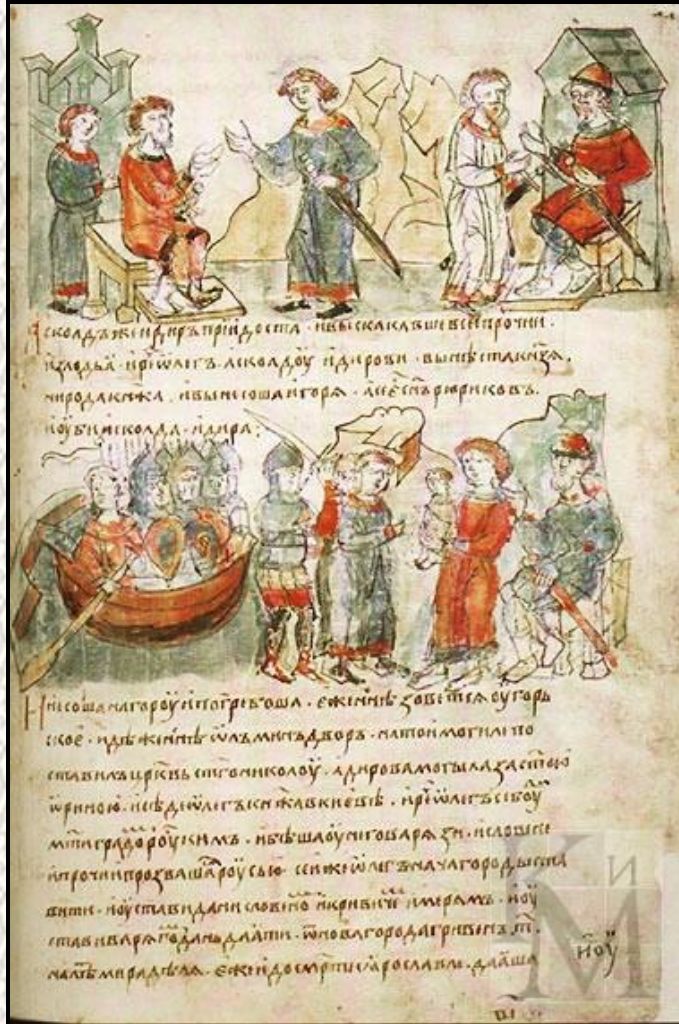 Асколдъжеидиръприидоста · ивыскакавшевсипрочии ·
изълодьа · ирече̑ѡлегъ · асколдоу идирови · вынѣстакнѧзѧ ·
нироданѧжа · ивынесошаигорѧ · асеес͠нърюриковъ ·
иоубишасколда · идира :
Инесошанагороуипогребоша · еженн҃ѣзоветсѧоугорь
ское · идѣженн҃ѣѡлъминъдворъ · натоимогилѣпо
ставилъцр҃квьст҃гониколоу · адировамогылазаст҃ою
ѡриною · исѣдеѡлегъкнѧжавкиевѣ · ирече̑ѡлегъсебоу̑
мт҃иград̑ороус̑кимъ · ибѣшаоунеговарѧзи · исловене
ипрочиипрозвашасѧроусью · сеижеѡлегъначагородыста
вити · иоуставиданисловено̑ икривиче̑ имерѧмъ · иоу
ставиварѧго̑даньдаꙗти · ѿновагородагривенъ · т҃ ·
налѣт̑мирадѣлѧ · ежеидосмр҃тиꙗрославлѧ · даꙗша
иоу̑
КИМ